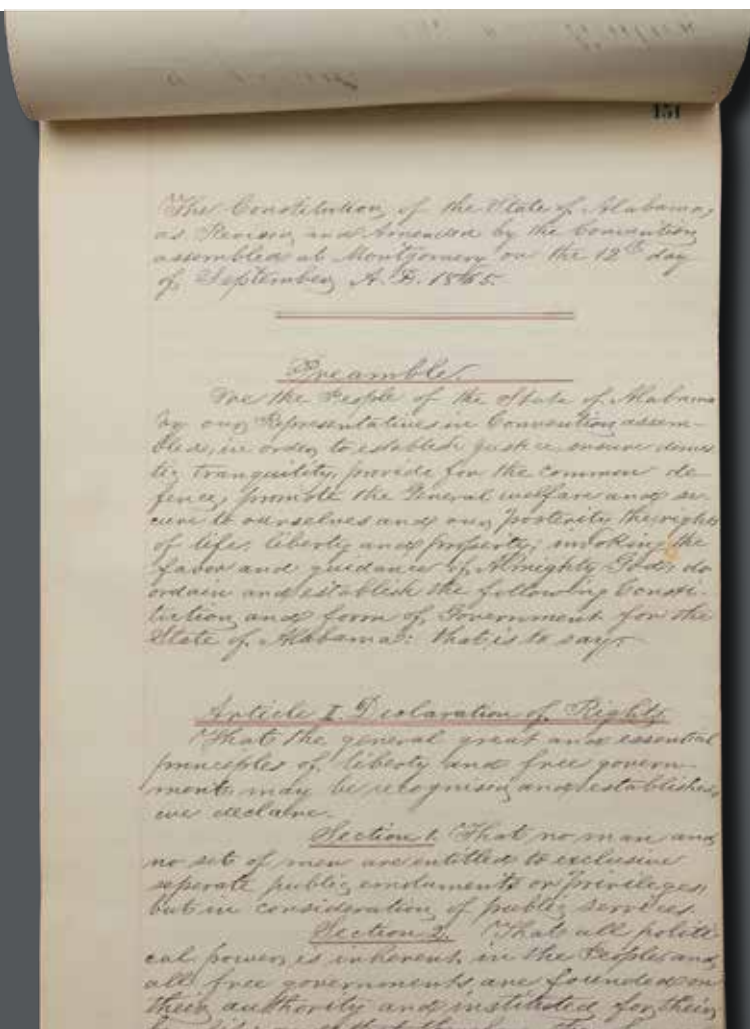 151
The Constitution, of the State of Alabama,
as Revised and Amended by the Convention
assembled at Montgomery on the 12th day
of September, A. D. 1865.
Preamble.
We the People of the State of Alabama
by our Representatives in Convention assem-
bled, in order to establish justice, ensure domes
tic tranquility, provide for the common de
fence, promote the General welfare and se-
cure to ourselves and our posterity the rights
of life, liberty and property; invoking the
favor and guidance of Almighty God, do
ordain and establish the following Consti-
tution and form of Government for the
State of Alabama: that is to say:
Article I. Declaration of Rights.
That the general great and essential
principles of liberty and free govern-
ment may be recognised and established,
we declare.
Section 1. That no man and
no set of men are entitled to exclusive
seperate public emoluments or privileges
but in consideration of public services.
Section 2. That all politi
cal power is inherent in the People and
all free governments are founded on
their authority and instituted for their